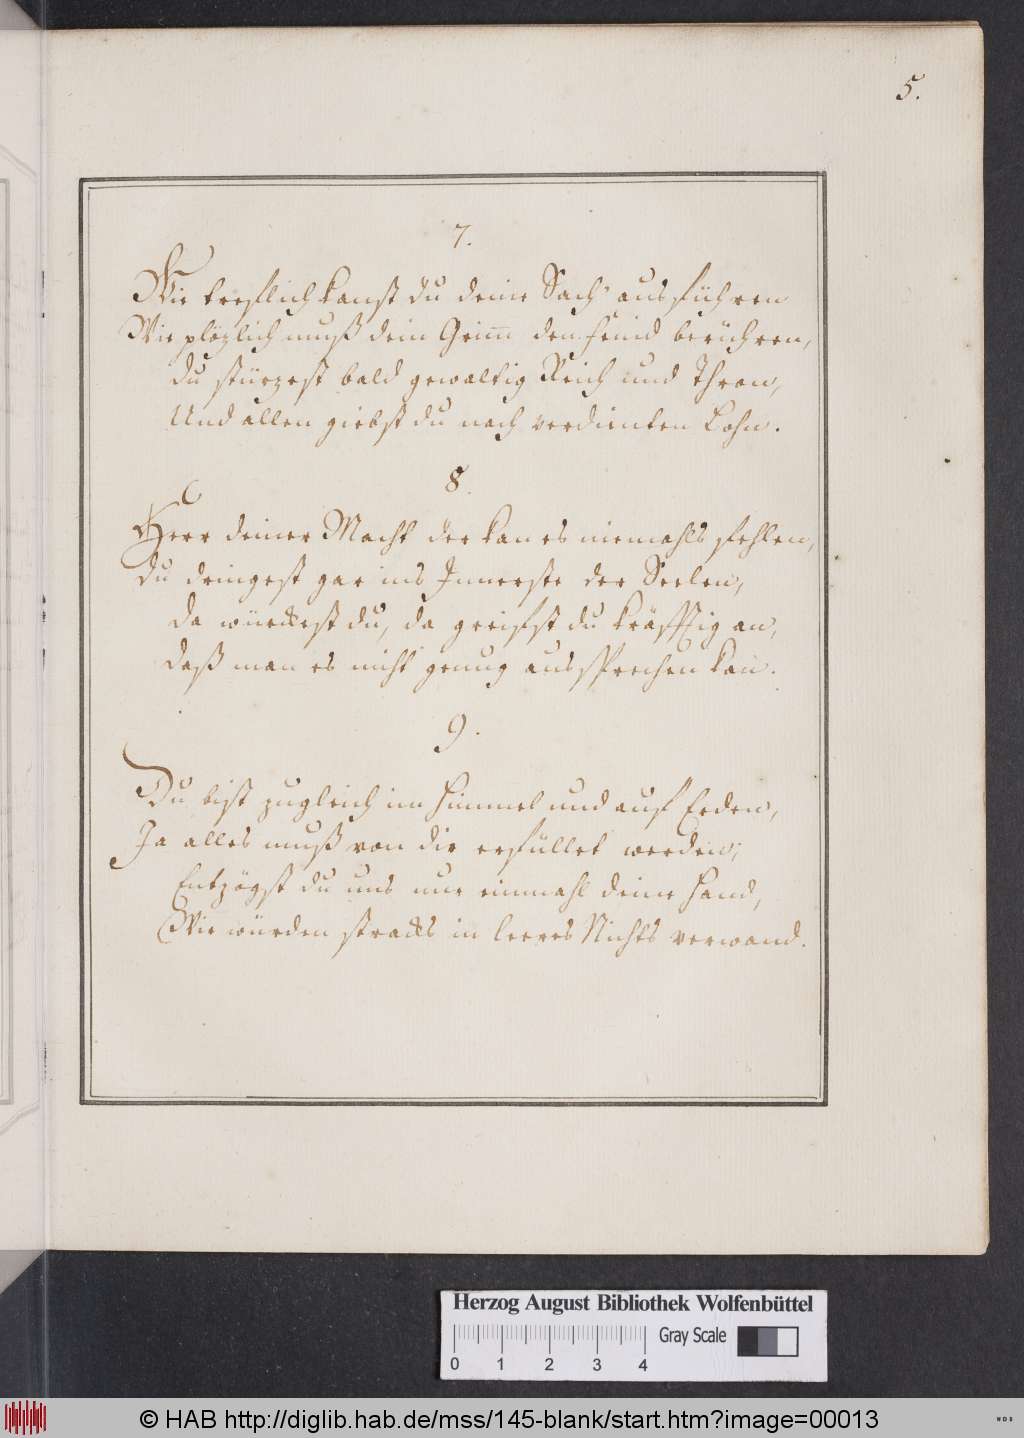 5.
7.
Wie trefflich kanst du deine Sach' ausführen
Wie plözlich muß dein Grim̅ den Feind berühren,
du stürzest bald gewaltig Reich und Thron,
Und allen giebst du nach verdienten Lohn.
8.
Herr deiner Macht der kan es niemahls fehlen,
du dringest gar ins Innerste der Seelen,
da würckest du, da greiffst du kräfftig an,
daß man es nicht genug aussprechen kan.
9.
Du bist zugleich im Himmel und auf Erden,
Ja alles muß von dir erfüllet werden;
Entzögst du uns nur einmahl deine Hand,
Wir würden stracks in leeres Nichts verwand.
Herzog August Bibliothek Wolfenbüttel
Gray Scale
0 1 2 3 4
© HAB http://diglib.hab.de/mss/145-blank/start.htm?image=00013